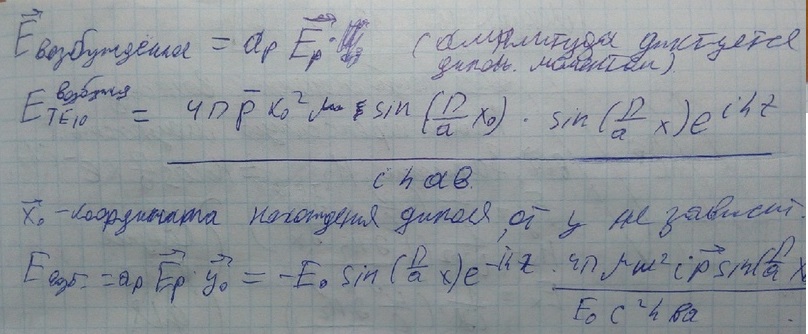 E⃗ возбуждённая = aₚ E⃗ₚ · (амплитуда диктуется
дипол. моментом).
E TE10 возбужд = 4π p̄ k₀² μ sin(π/a x₀) · sin(π/a x) e^{ihz}
i h ab.
x⃗₀ - координата нахождения диполя, от y не зависит.
E возб. = aₚ E⃗ₚ y⃗₀ = -E₀ sin(π/a x) e^{-ihz} · 4π μ ω² i p⃗ sin(π/a x₀
E₀ c² h ba